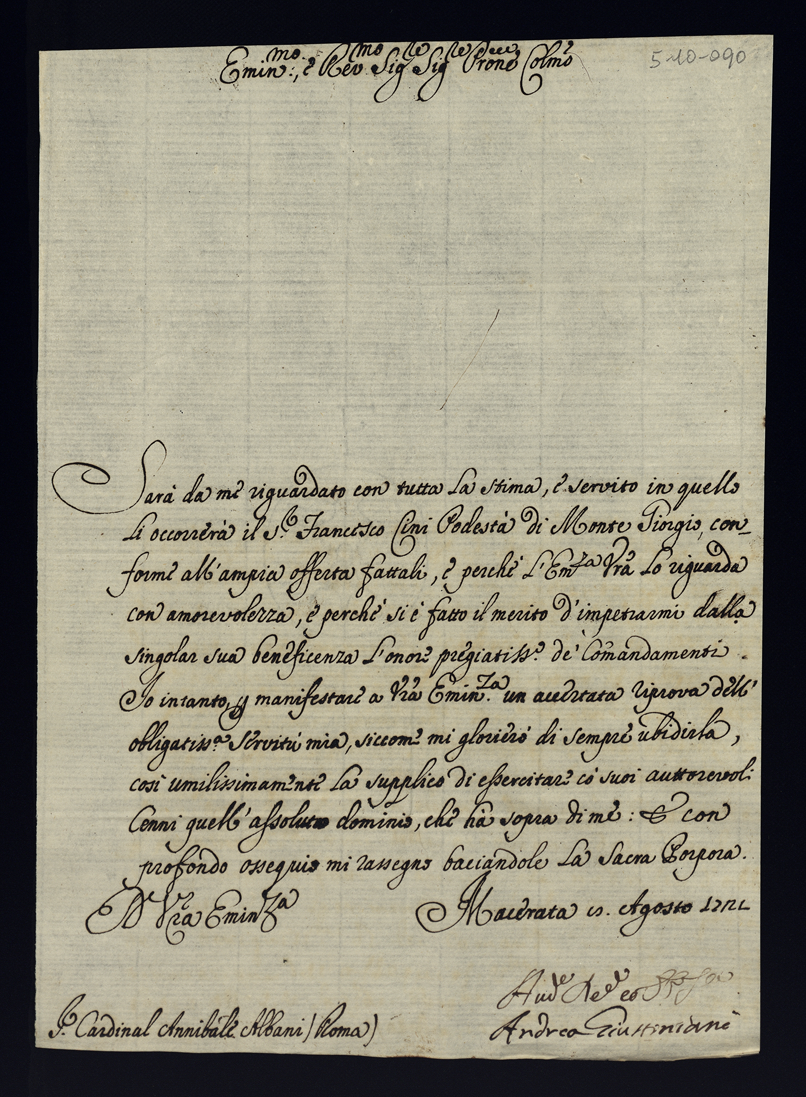 5-10-090
Emin.mo, è Rev.mo Sig.re Sig.re Prone Colmo
Sarà da me riguardato con tutta la stima, è servito in quello
li occorrerà il S.r Francesco Cini Podestà di Monte Giorgio, con_
forme all'ampia offerta fattali, è perchè l'Em.za Vra lo riguarda
con amorevolezza, è perchè si è fatto il merito d'impetrarmi dalla
singolar sua beneficenza l'onore pregiatiss.o de' Comandamenti.
Io intanto, p manifestare a Vra Emin.za un accertata riprova dell'
obligatiss.a servitù mia, siccome mi glorierò di sempre ubidirla,
così umilissimamente la supplico di essercitare cò suoi auttorevoli
Cenni quell'assoluto dominio, che hà sopra di me: & con
profondo ossequio mi rassegno baciandole la Sacra Porpora.
D Vra Emin.za Macerata Agosto 1721
Card
S.r Cardinal Annibale Albani (Roma)
Andrea Giustiniani